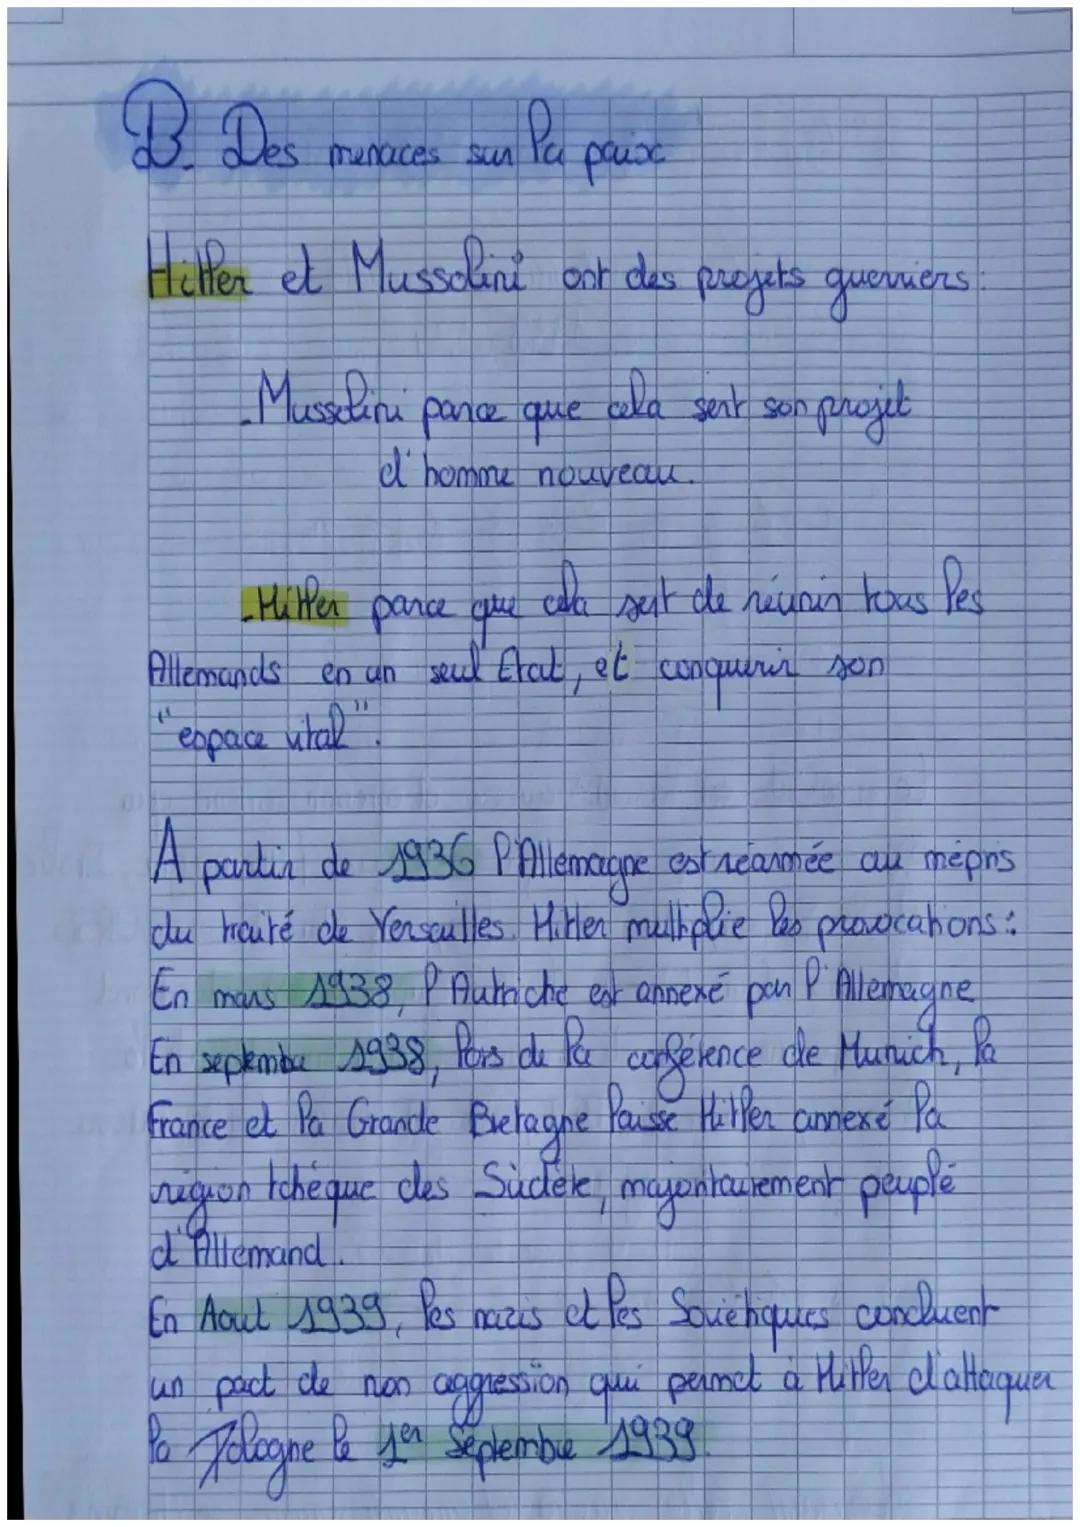 B. Des menaces sur la paix
Hitler et Mussolini ont des projets guerriers :
- Mussolini parce que cela sert son projet
d'homme nouveau.
- Hitler parce que cela sert de réunir tous les
Allemands en un seul Etat, et conquerir son
"espace vital".
A partir de 1936 l'Allemagne est réarmée au mépris
du traité de Versailles. Hitler multiplie les provocations :
En mars 1938, l'Autriche est annexé par l'Allemagne
En septembre 1938, lors de la conférence de Munich, la
France et la Grande Bretagne laisse Hitler annexé la
région tchéque des Sudète, majoritairement peuplé
d'Allemand.
En Aout 1939, les nazis et les Soviétiques concluent
un pact de non aggression qui permet à Hitler d'attaquer
la Pologne le 1er Septembre 1939.